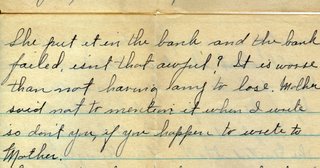 She put it in the bank and the bank
failed, isn't that awful? It is worse
than not having any to lose. Mother
said not to mention it when I write
so don't you, if you happen to write to
Mother.